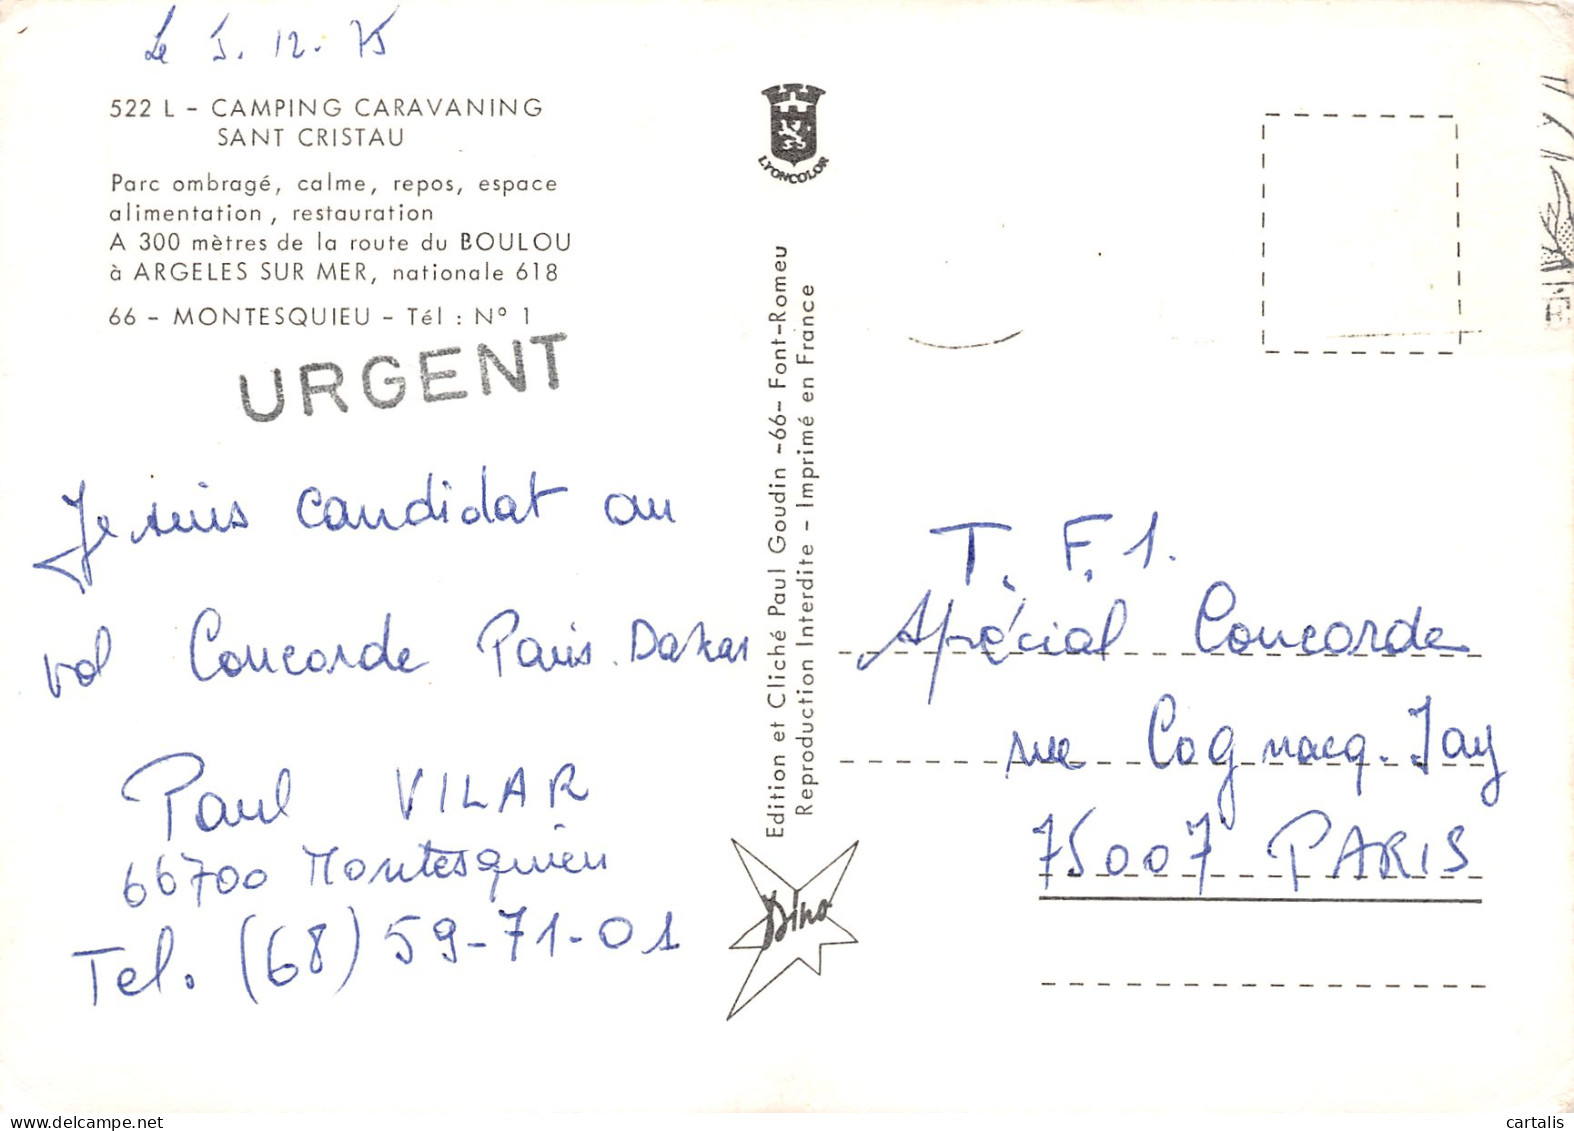 Le 5. 12. 75
522 L - CAMPING CARAVANING
SANT CRISTAU
Parc ombragé, calme, repos, espace
alimentation, restauration
A 300 mètres de la route du BOULOU
à ARGELES SUR MER, nationale 618
66 - MONTESQUIEU - Tél : N° 1
URGENT
Je suis candidat au
vol Concorde Paris. Dakar
Paul VILAR
66700 Montesquieu
Tel. (68) 59-71-01
LYONCOLOR
Edition et Cliché Paul Goudin -66- Font-Romeu
Reproduction Interdite - Imprimé en France
Dino
T. F. 1.
Spécial Concorde
rue Cognacq. Jay
75007 PARIS
cartalis